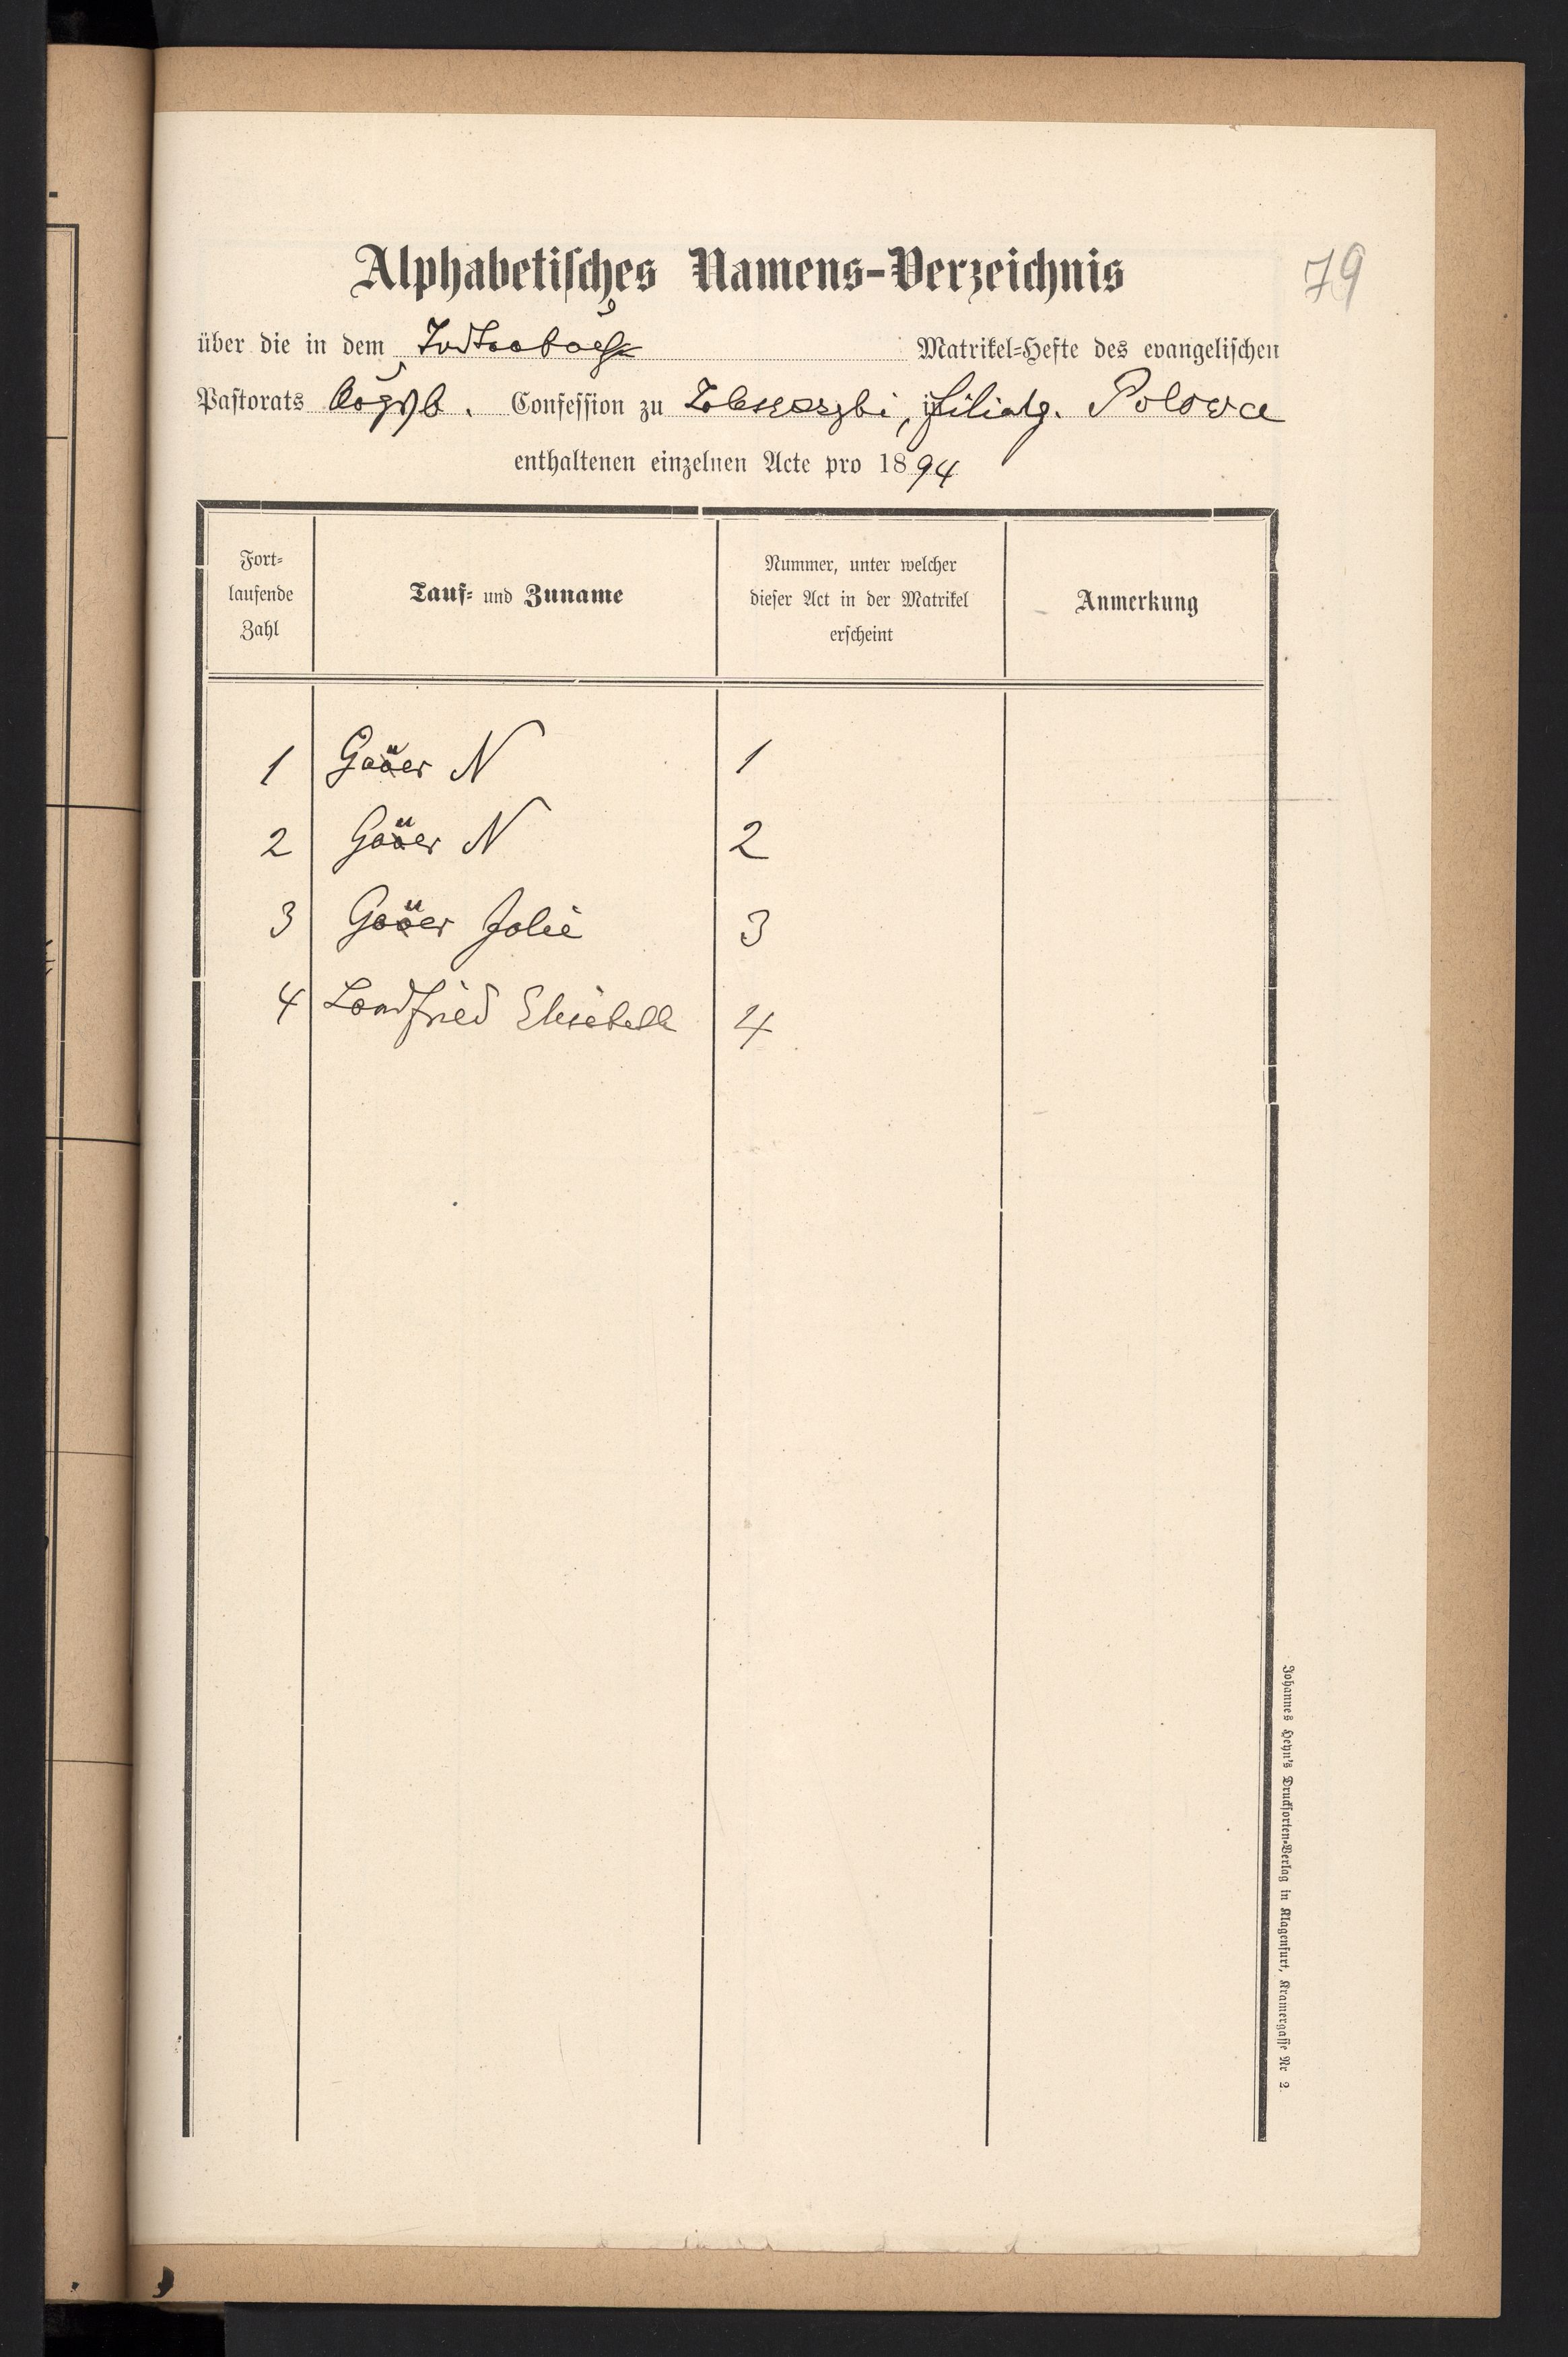 Alphabetisches Namens-Verzeichnis
79
über die in dem Matrikel-Hefte des evangelischen
Pastorats Augsb. Confession zu Zaleszczyki, filialg. Polowce
enthaltenen einzelnen Acte pro 1894
Fort-
laufende
Zahl
Tauf- und Zuname
Nummer, unter welcher
dieser Act in der Matrikel
erscheint
Anmerkung
1 N 1
2 N 2
3 Julie 3
4 Landfried Elisabeth 4
Johannes Heyn's Drucksorten-Verlag in Klagenfurt, Kramergasse Nr 2.